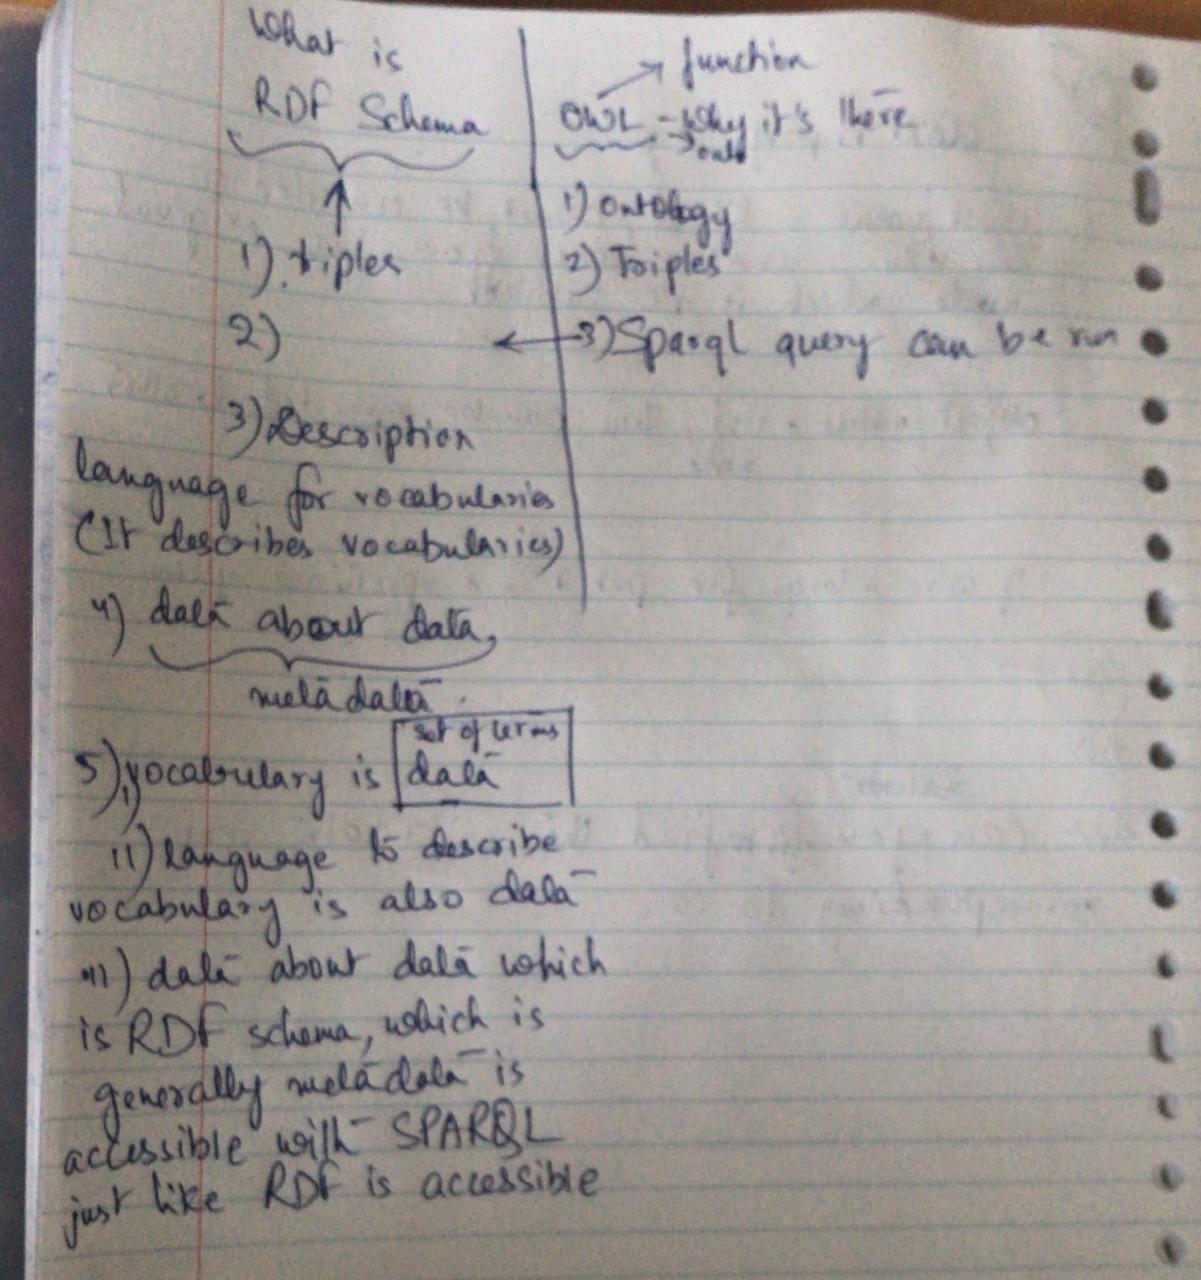 What is
RDF Schema
1) triples
2)
3) Description
language for vocabularies
(It describes vocabularies)
4) data about data,
metadata.
set of terms
5) i) vocabulary is data
ii) language to describe
vocabulary is also data
iii) data about data which
is RDF schema, which is
generally metadata is
accessible with SPARQL
just like RDF is accessible
function
OWL - Why it's there
1) ontology
2) Triples
3) Sparql query can be run